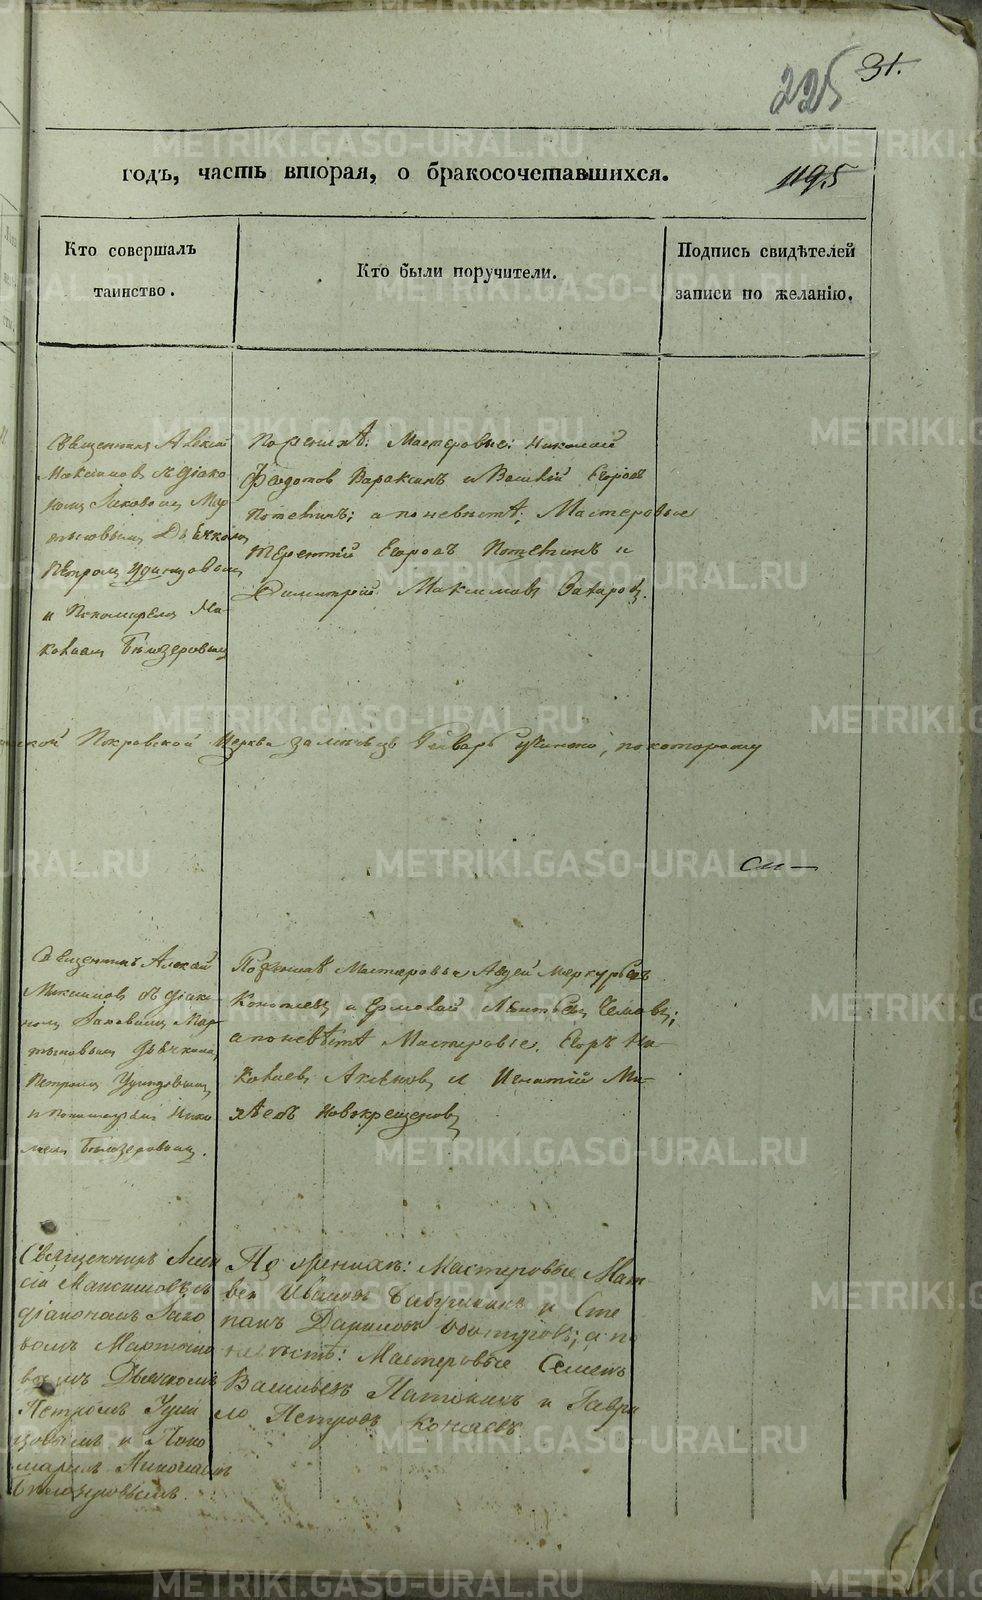 225 31.
годъ, часть вторая, о бракосочетавшихся.
1195
Кто совершалъ
таинство.
Кто были поручители.
Подпись свидѣтелей
записи по желанію.
Священникъ Алексій
Максимовъ съ діако
номъ Іаковомъ Мар
тыновымъ Дьячкомъ
Петромъ Удинцовымъ
и Пономаремъ Ни-
колаемъ Бѣлозеровымъ
По женихѣ: Мастеровые: Николай
Федотовъ Вараксинъ и Василій Егоровъ
Потехинъ; а по невѣстѣ: Мастеровые
Терентій Егоровъ Потехинъ и
Димитрій Максимовъ Захаровъ.
Покровской Церкви за мѣсяцъ Генварь учинено, по которому
си—
Священникъ Алексій
Максимовъ съ діако-
номъ Іаковомъ Мар-
тыновымъ дьячкомъ
Петромъ Удинцовымъ
и пономаремъ Нико
лаемъ Бѣлозеровымъ.
По женихѣ Мастеровые Авдей Меркурьевъ
и
а по невѣстѣ Мастеровые: Егоръ Ни-
колаевъ Аксеновъ и Игнатій Ми-
хѣевъ Новокрещеновъ
Священникъ Алек
сій Максимовъ съ
діакономъ Іако
вомъ Мартыно
вымъ Дьячкомъ
Петромъ Удин
цовымъ и Поно
маремъ Николаемъ
Бѣлозеровымъ.
По женихѣ: Мастеровые Мат
вей Ивановъ Бабушкинъ и Сте
панъ Даниловъ а по
невѣстѣ: Мастеровые Семенъ
Васильевъ и Гаври
ло Петровъ Коняевъ
METRIKI.GASO-URAL.RU